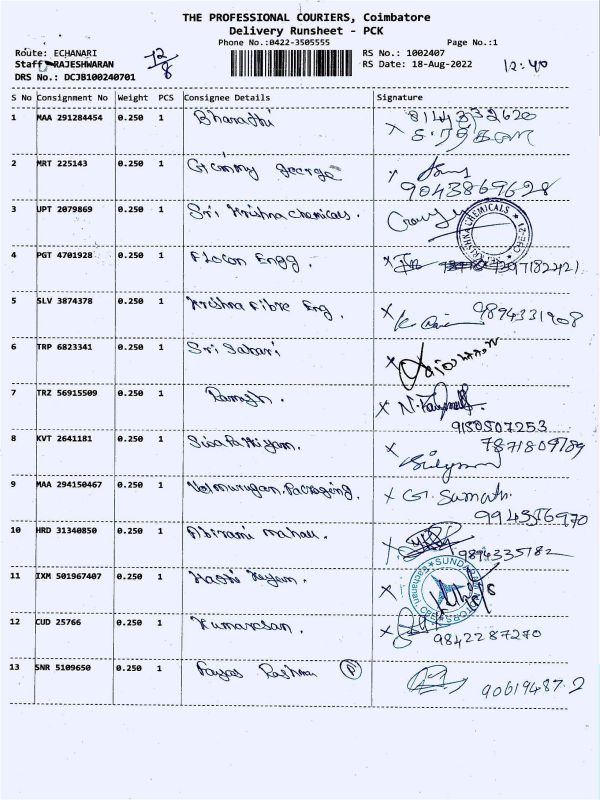 THE PROFESSIONAL COURIERS, Coimbatore
Delivery Runsheet - PCK
Phone No.:0422-3505555 Page No.:1
Route: ECHANARI RS No.: 1002407
Staff RAJESHWARAN 12/8 RS Date: 18-Aug-2022 12:40
DRS No.: DCJB100240701
S No Consignment No Weight PCS Consignee Details Signature
1 MAA 291284454 0.250 1 Bharathi
2 MRT 225143 0.250 1 George
9043869628
3 UPT 2079869 0.250 1 Sri Krishna chemicals.
4 PGT 4701928 0.250 1 Flocon Engg.
5 SLV 3874378 0.250 1 Krishna Fibre Eng. 9894331908
6 TRP 6823341 0.250 1 Sri Sabari
7 TRZ 56915509 0.250 1 Ramesh.
9150507253
8 KVT 2641181 0.250 1 7871809789
9 MAA 294150467 0.250 1 Velmurugan. Packaging. G. Sumathi.
994516970
10 HRD 31340850 0.250 1 Abirami mahall. 9894335182
11 IXM 501967407 0.250 1
12 CUD 25766 0.250 1 Kumaresan. 9842287270
13 SNR 5109650 0.250 1 P